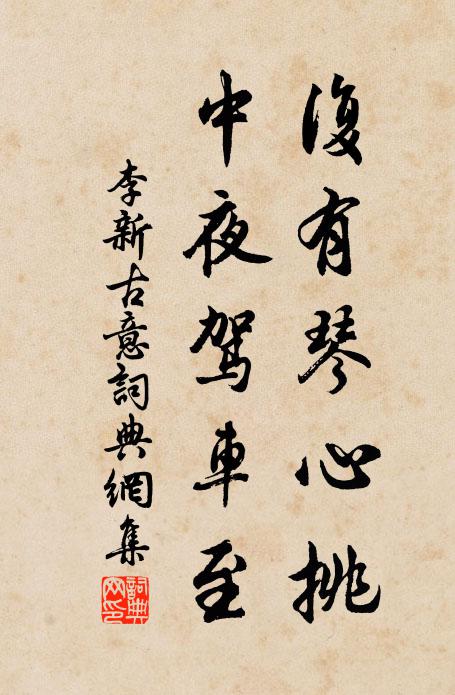 復有琴心挑
中夜駕車至
李新古意詞典網集
詞典
网印